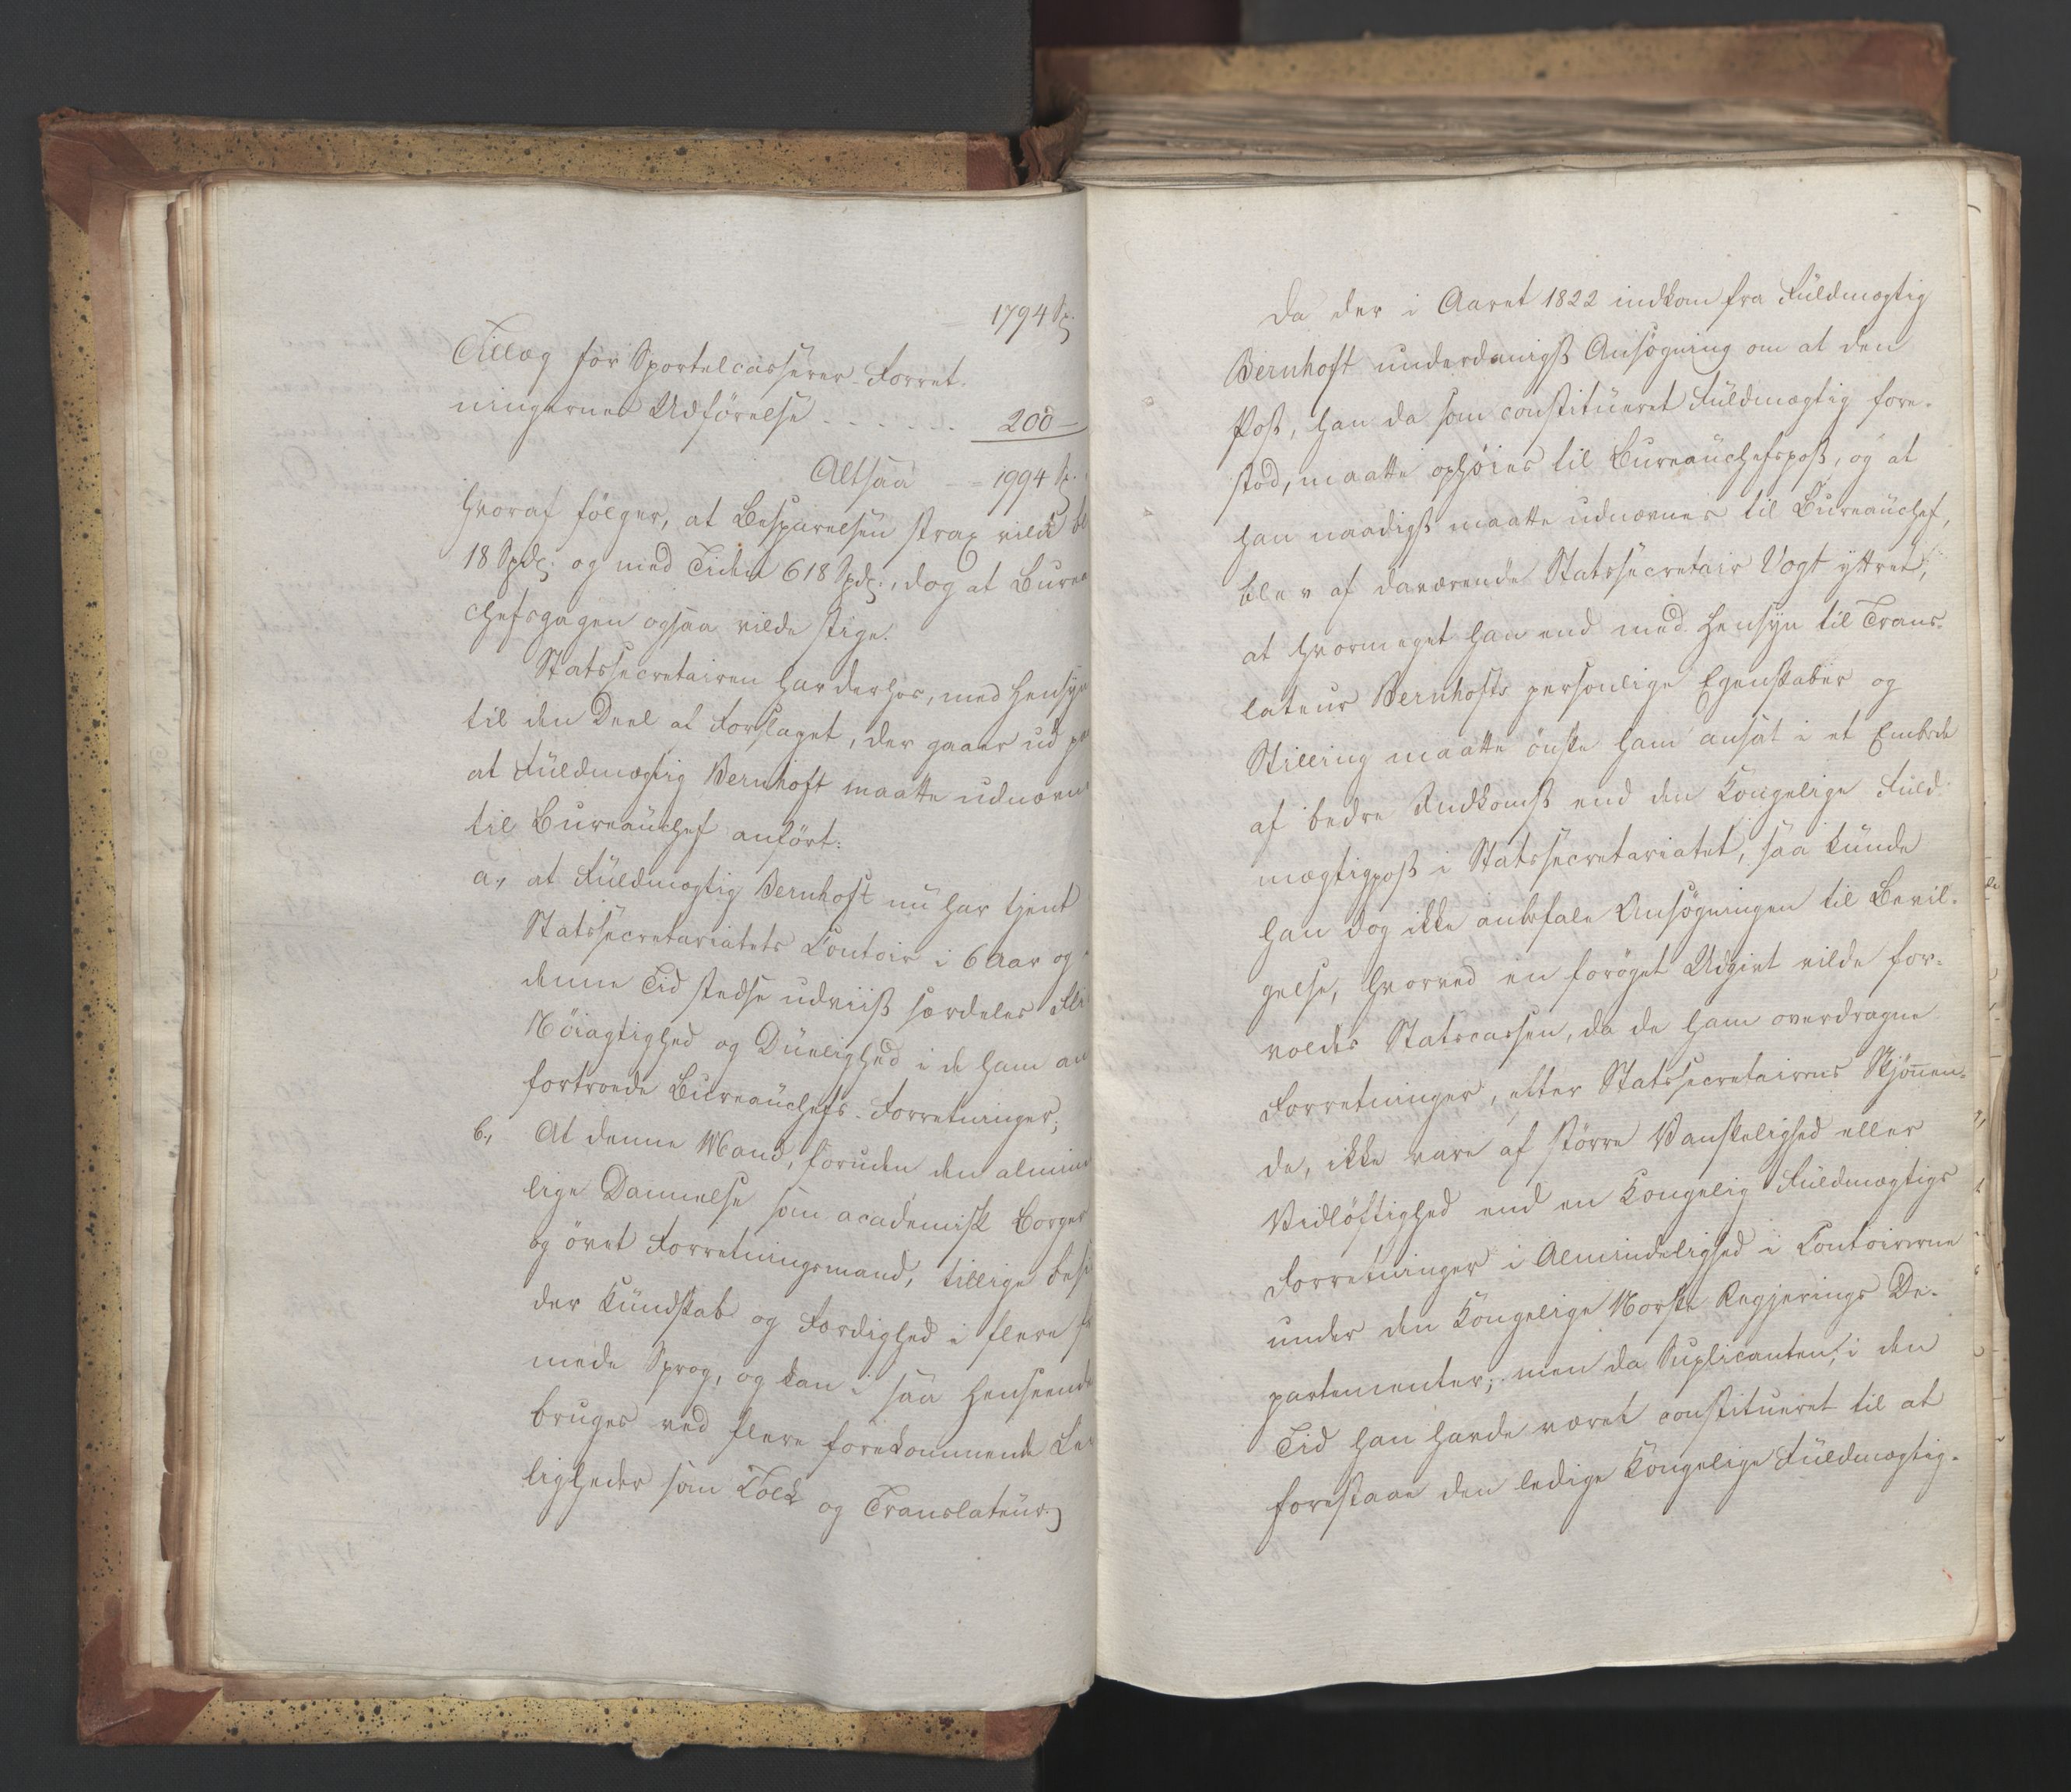 1794 Sp.
Tillæg for Sportelcasserer-Forret-
ningernes Udførelse . . . . . . 200 –
Altsaa – – 1994 Sp.
hvoraf følger, at Besparelsen strax vilde bl
18 Spd. og med Tiden 618 Spd., dog at Burea
chefsgagen ogsaa vilde stige.
Statssecretairen har derhos, med Hensyn
til den Deel af Forslaget, der gaaer ud pa
at Fuldmægtig Bernhoft maatte udnævn
til Bureauchef anført:
a., at Fuldmægtig Bernhoft nu har tjent
Statssecretariatets Contoir i 6 Aar og
denne Tid stedse udviist særdeles Fli
Nøiagtighed og Duelighed i de ham an
fortroede Bureauchefs-Forretninger;
b., At denne Mand, foruden den almin
lige Dannelse som academisk Borger
og øvet Forretningsmand, tillige besi
der Kundskab og Færdighed i flere fr
mede Sprog, og kan i saa Henseende
bruges ved flere forekommende Lei
ligheder som Tolk og Translateur.
Da der i Aaret 1822 indkom fra Fuldmægtig
Bernhoft underdanigst Ansøgning om at den
Post, han da som constitueret Fuldmægtig fore-
stod, maatte ophøies til Bureauchefspost, og at
han naadigst maatte udnævnes til Bureauchef,
blev af daværende Statssecretair Vogt yttret,
at hvormeget han end med Hensyn til Trans-
lateur Bernhofts personlige Egenskaber og
Stilling maatte ønske ham ansat i et Embede
af bedre Indkomst end den Kongelige Fuld-
mægtigpost i Statssecretariatet, saa kunde
han dog ikke anbefale Ansøgningen til Bevil-
gelse, hvorved en forøget Udgivt vilde for-
voldes Statscassen, da de ham overdragne
Forretninger, efter Statssecretairens Skjønnen-
de, ikke vare af større Vanskelighed eller
Vidløftighed end en Kongelig Fuldmægtigs
Forretninger i Almindelighed i Contoirerne
under den Kongelige Norske Regjerings De-
partementer; men da Suplicanten, i den
Tid han havde været constitueret til at
forestaae den ledige Kongelige Fuldmægtig-